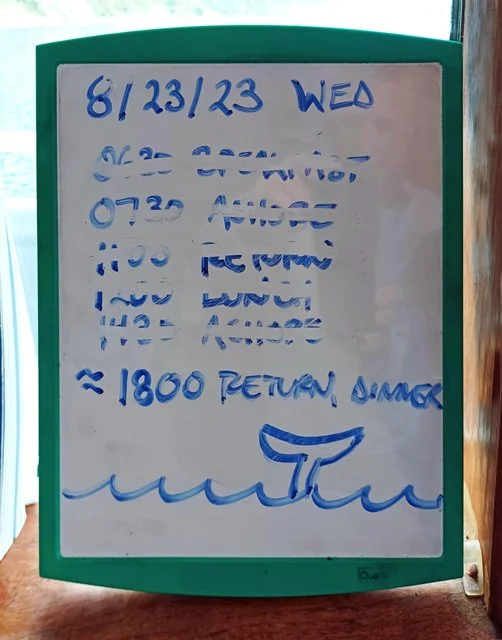 8/23/23 WED
0630 BREAKFAST
0730 ASHORE
1100 RETURN
1200 LUNCH
1430 ASHORE
≈ 1800 RETURN, DINNER